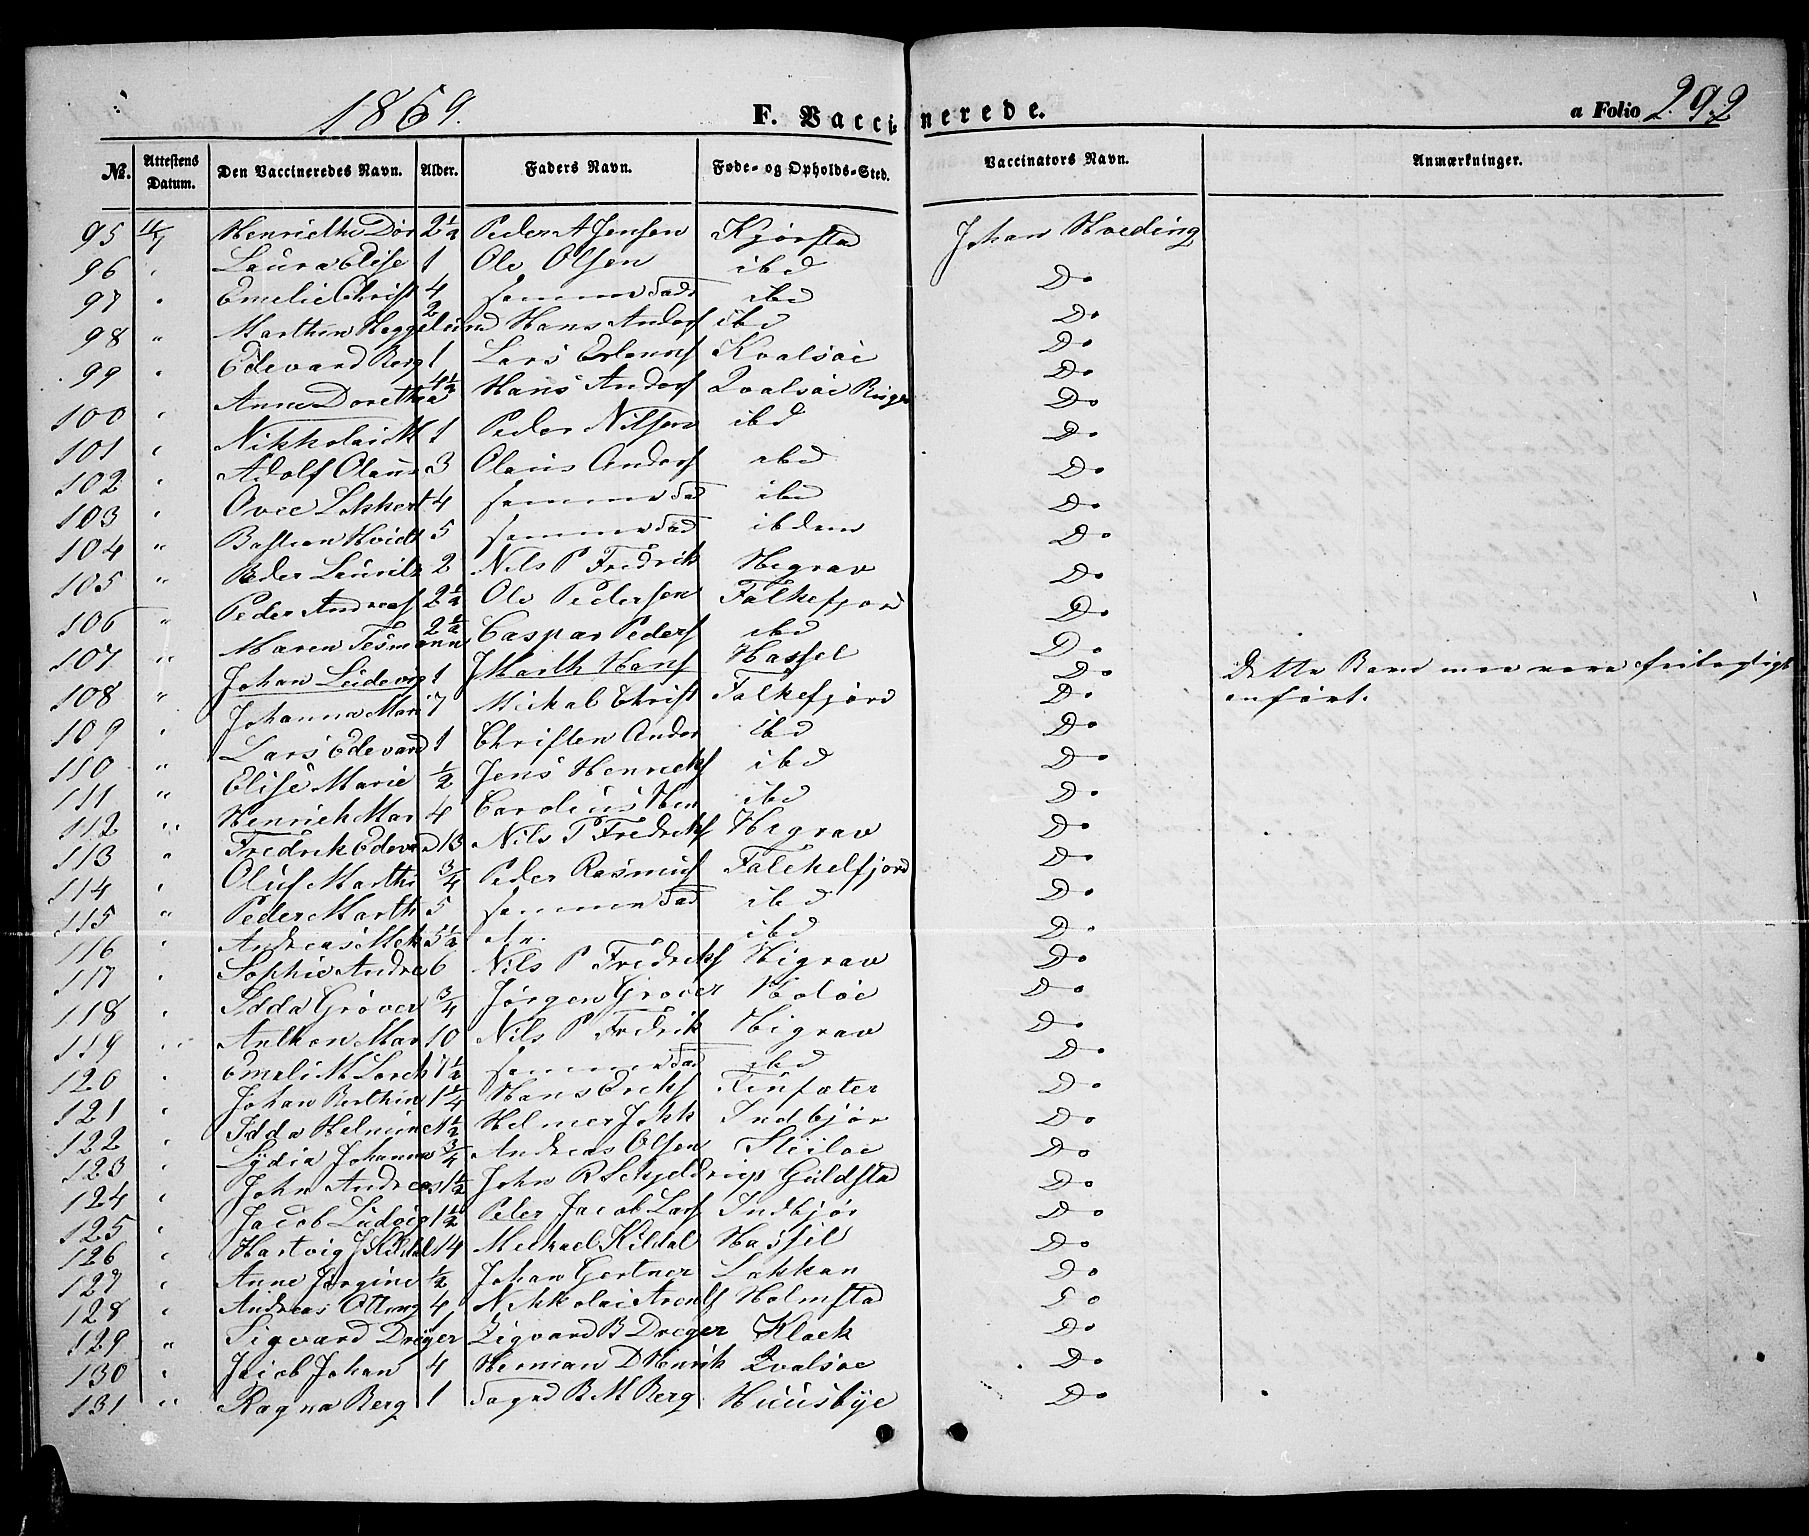 1869. F. Vaccinerede. a Folio 292
No. Attestens Datum. Den Vaccineredes Navn. Alder. Faders Navn. Føde- og Opholds-Sted. Vaccinators Navn. Anmærkninger.
95 Henriethe Dor 2½ Peder A Jensen Kjørstad Johan Hveding
96 " Laura Elise 1 Ole Olsen ibd Do
97 " Emelie Christ 4 samme Fad ibd Do
98 " Marthin Heggelund 2 Hans Anders ibd Do
99 " Edevard Berg 1 Lars Erlanns Kvalsøe Do
100 " Anne Dorethea 4½ Hans Anders Qvalsøe Do
101 " Nikkolai M 1 Peder Nilsen ibd Do
102 " Adolf Olaus 3 Olaus Anders ibd Do
103 " Ovee Ekkert 4 samme Fad ibd Do
104 " Bastian Hvidt 5 samme Fad ibdem Do
105 " Peder Laurits 2 Nils P Fredrik Higrav Do
106 " Peder Andreas 2½ Ole Pedersen Falkefjord Do
107 " Maren Tesmann 2½ Caspar Peders ibd Do
108 " Johan Ludevig 1 J Marth Hans Hassel Do Dette Barn maa være feilagtigt
Johanna Mari 7 Mickal Christ Falkefjord Do anført.
109 " Lars Edevard 1 Christen Ander ibd Do
110 " Elise Marie ½ Jens Henriks ibd Do
111 " Henrich Mar 4 Carolius Hen ibd Do
112 " Fredrik Edevard 13 Nils P Fredriks Higrav Do
113 " Oluf Marthi ¾ Peder Rasmus Falckelfjord Do
114 " Peder Marth 5 samme Fad ibd Do
115 " Andreas Mek 5½ ibd Do
116 " Sophie Andre 6 Nils P Fredriks Higrav Do
117 " Idda Grøver ¾ Jørgen Grøver Holøe Do
118 " Anthon Mar 10 Nils P Fredrik Higrav Do
119 " Emeli M Lorch 7½ samme Fad ibd Do
120 " Johan Berthin 1¼ Hans Eriks Finsæter Do
121 " Idda Helmine 1½ Helmer Jokk Indbjør Do
122 " Lydia Johanna ¾ Andreas Olsen Steiløe Do
123 " John Andreas 1½ John R Schjeldrup Guldstad Do
124 " Jacob Ludvig 1½ Peter Jacob Lars Indbjør Do
125 " Hartvig J Kildal 14 Mickael Kildal Hassel Do
126 " Anne Jørgine ½ Johan Gertner Lakkan Do
127 " Andreas Ottong 4 Nikkolai Arents Holmstad Do
128 " Sigvard Dreyer 1 Zigvard B Dreyer Klaek Do
129 " Jacob Johan 4 Herman D Henrik Qvalsøe Do
130 " Ragna Berg 1 Fogd B M Berg Huusbye Do
131 "